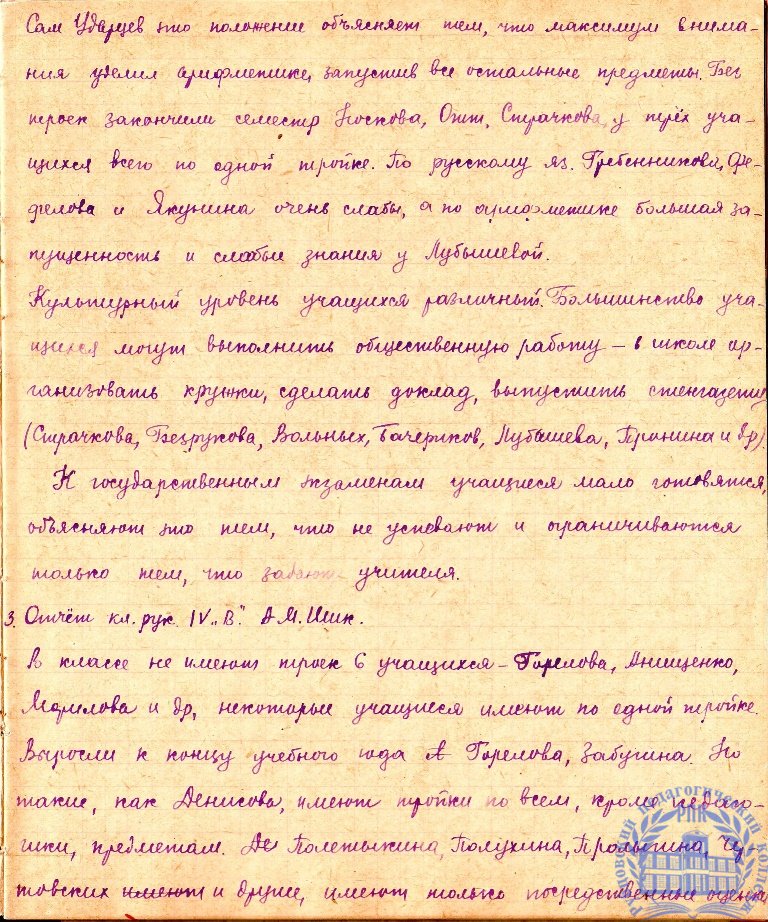 Сам Ударцев это положение объясняет тем, что максимум внима-
ния уделил арифметике, запустив все остальные предметы. Без
троек закончили семестр Носкова, Отт, Страчкова, у трёх уча-
щихся всего по одной тройке. По русскому яз. Гребенникова, Фе-
фелова и Якунина очень слабы, а по арифметике большая за-
пущенность и слабые знания у Лубышевой.
Культурный уровень учащихся различный. Большинство уча-
щихся могут выполнить общественную работу – в школе ор-
ганизовать кружки, сделать доклад, выпустить стенгазету
(Страчкова, Безрукова, Вольных, Бачериков, Лубышева, Пронина и др)
К государственным экзаменам учащиеся мало готовятся,
объясняют это тем, что не успевают и ограничиваются
только тем, что задают учителя.
3. Отчёт кл. рук. IV „В". А.М. Шик.
В классе не имеют троек 6 учащихся – Горелова, Анищенко,
и др, некоторые учащиеся имеют по одной тройке.
Выросли к концу учебного года Горелова, Забугина. Но
такие, как Денисова, имеют тройки по всем, кроме педаго-
гики, предметам. Полетыкина, Полухина, Чу-
товских имеют и другие, имеют только посредственные оценки
педагогический колледж
РПК